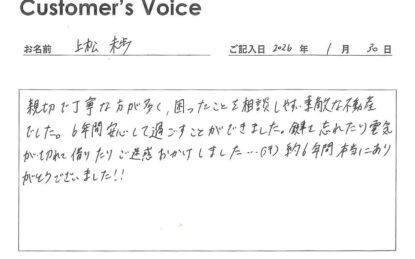 Customer's Voice
お名前 上松 未歩 ご記入日 2026 年 1 月 30 日
親切で丁寧な方が多く、困ったことを相談しやすい素敵な不動産
でした。6年間安心して過ごすことができました。鍵を忘れたり電気
が切れて借りたりご迷惑おかけしました…(汗) 約6年間本当にあり
がとうございました!!